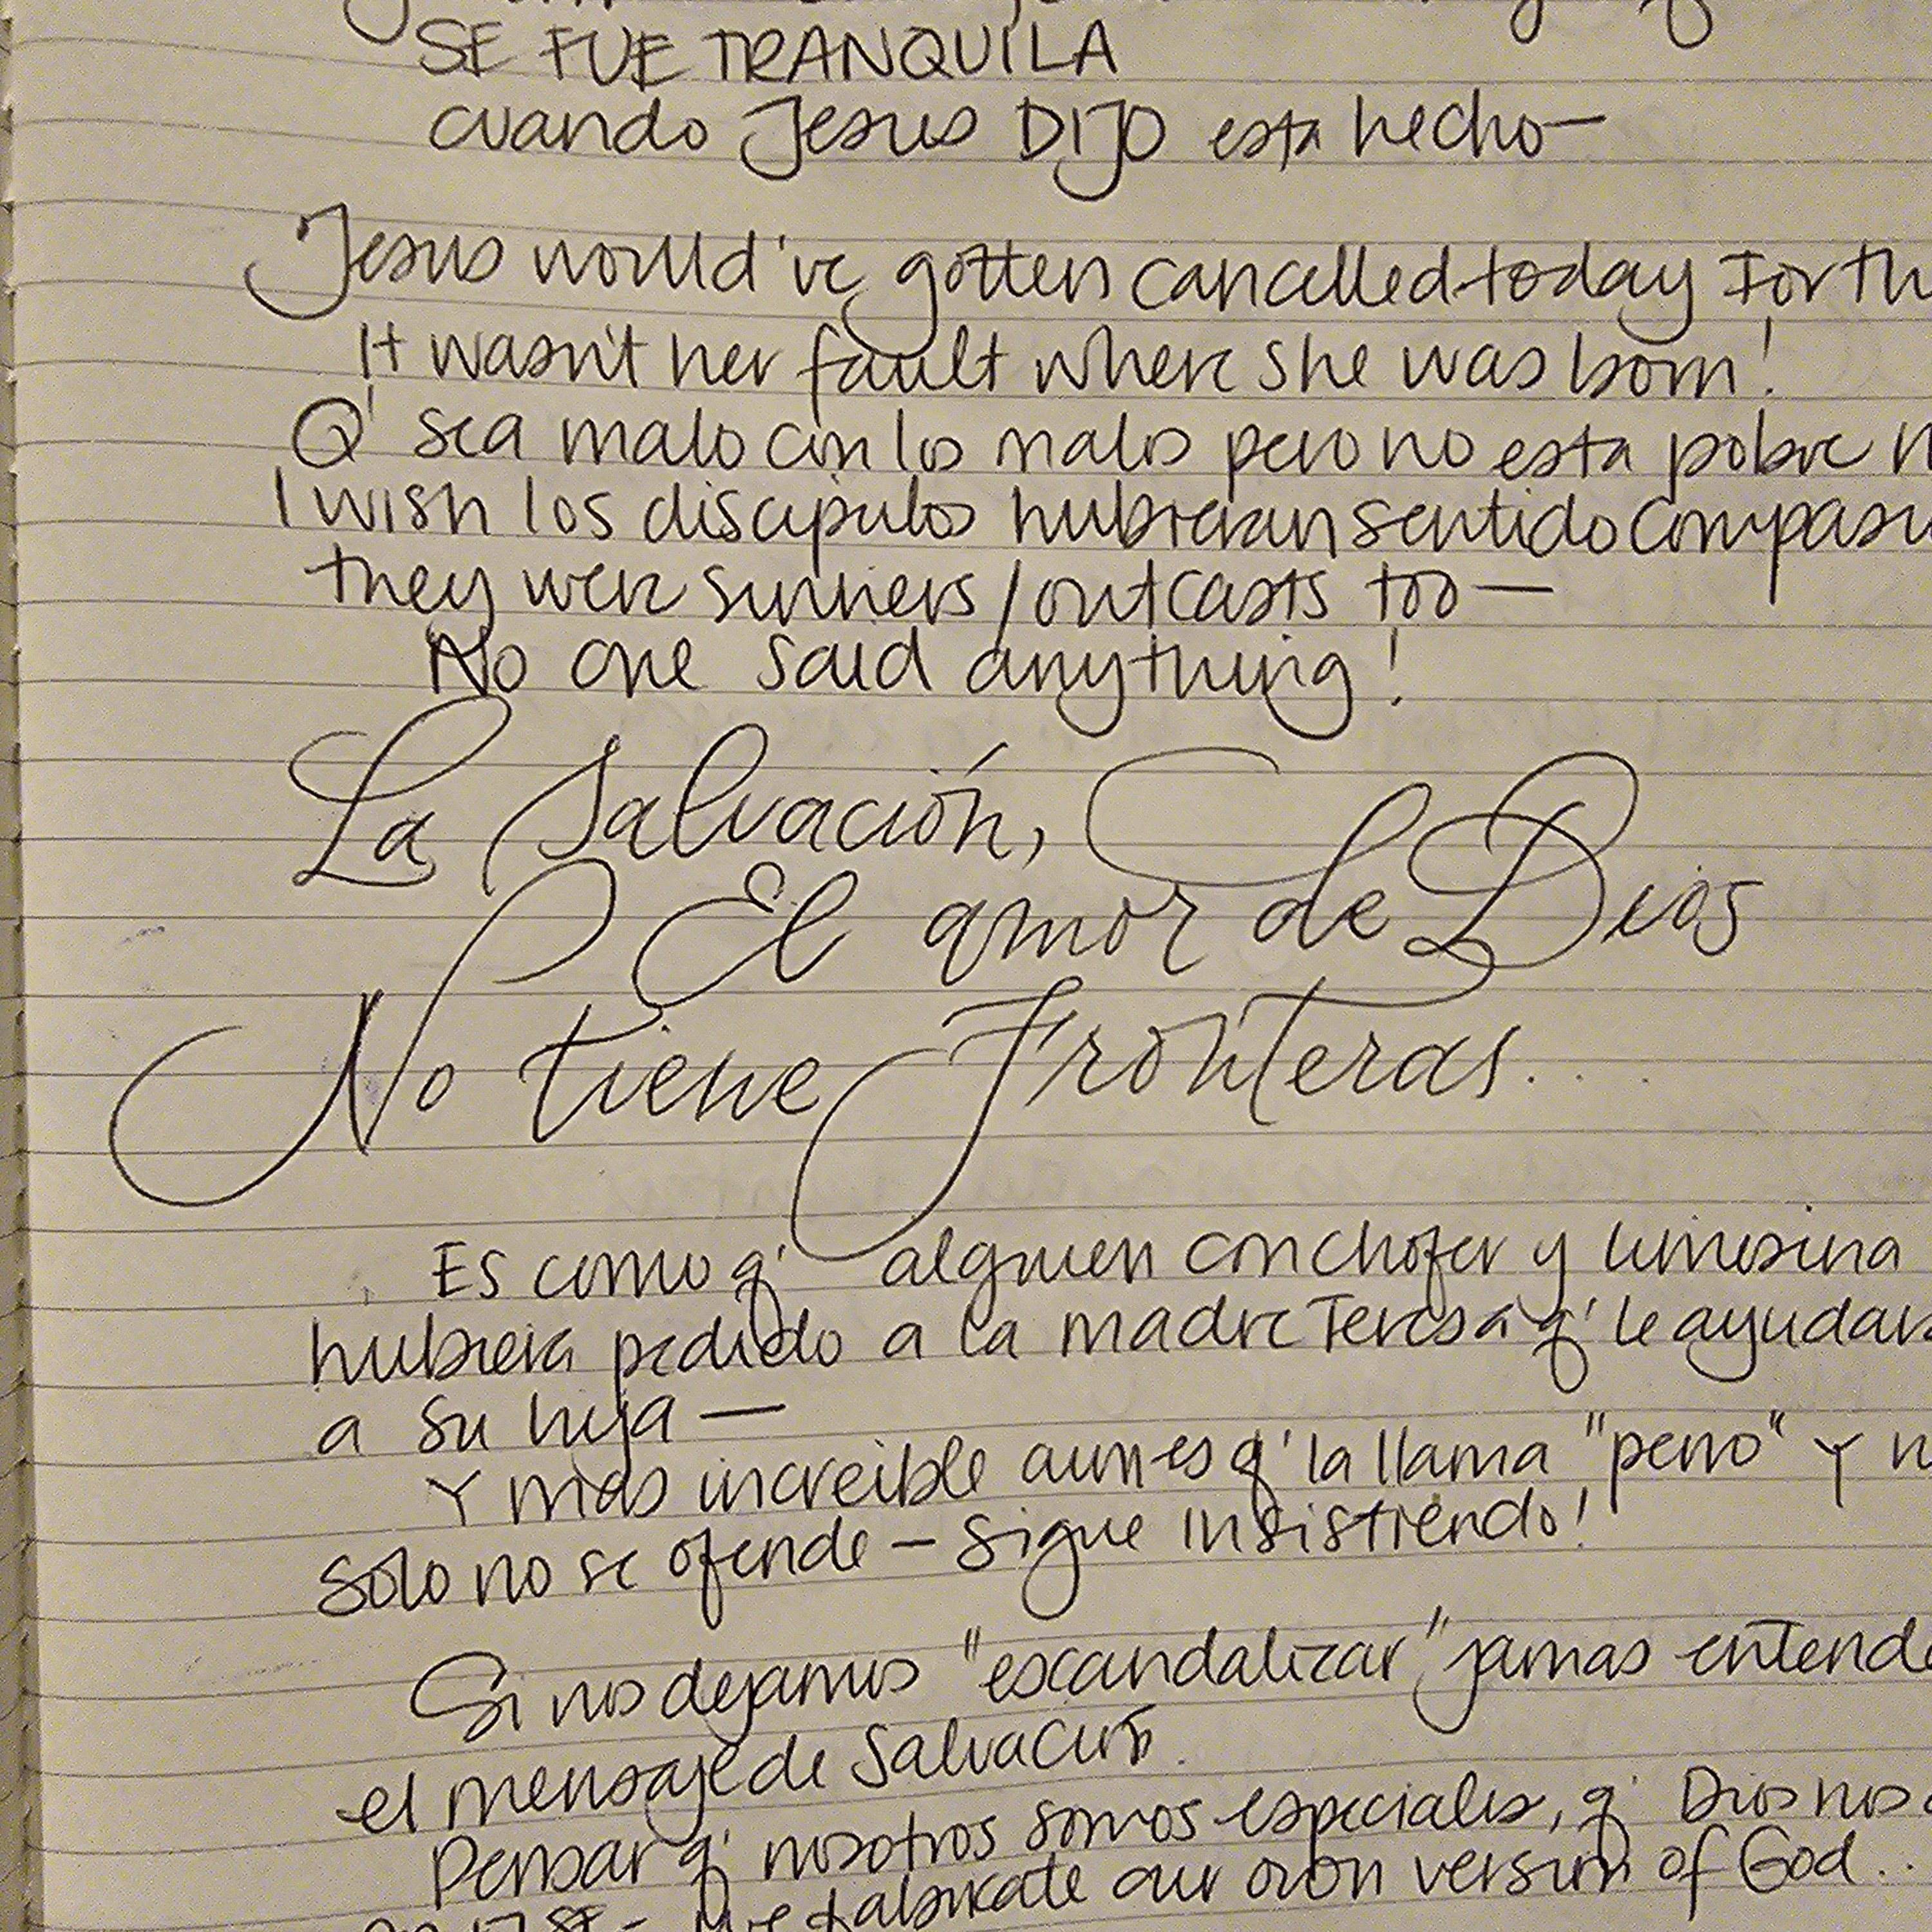 SE FUE TRANQUILA
cuando Jesus DIJO esta hecho—
Jesus would've gotten cancelled today for th
It wasn't her fault where she was born!
Q' sea malo con los malos pero no esta pobre
I wish los discipulos hubieran sentido compasi
they were sinners/outcasts too—
No one said anything!
La Salvación,
El amor de Dios
No tiene Fronteras...
Es como q' alguien con chofer y limosina
hubiera pedido a la madre Teresa q' le ayudara
a su hija—
Y mas increible aun es q' la llama "perro" Y n
solo no se ofende — sigue insistiendo!
Si nos dejamos "escandalizar" jamas entende
el mensaje de Salvación.
Pensar q' nosotros somos especiales, q' Dios nos
We fabricate our own version of God..